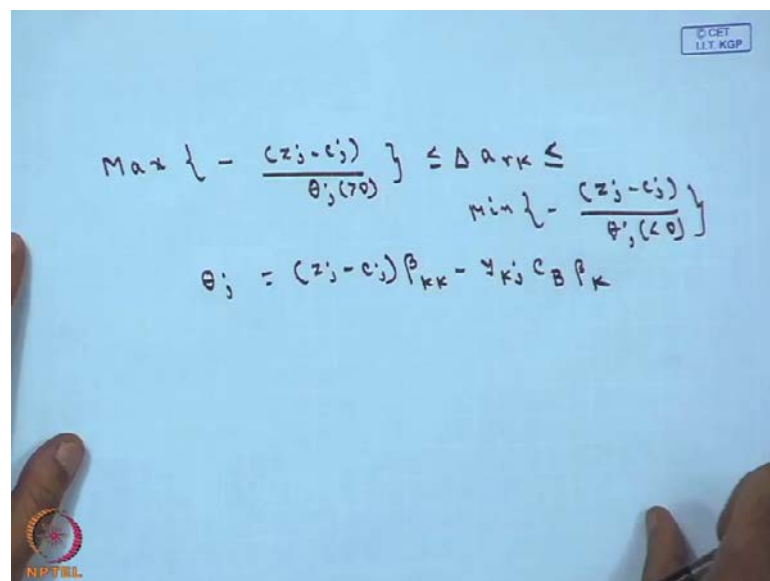 © CET
I.I.T. KGP
Max { - (zj - cj) / θj (>0) } ≤ Δ ark ≤
Min { - (zj - cj) / θj (<0) }
θj = (zj - cj) βKK - yKj CB βK
NPTEL